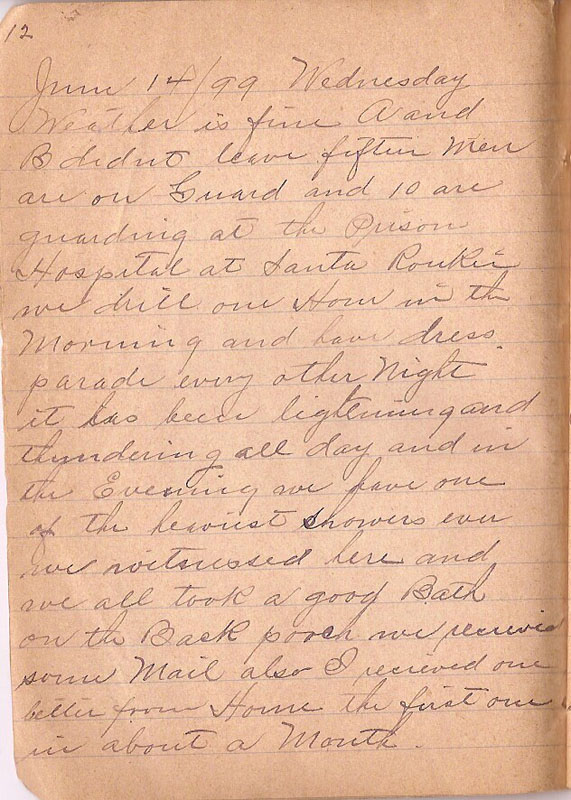 12
June 14/99 Wednesday
Weather is fine A and
B didnt leave fifteen Men
are on Guard and 10 are
guarding at the Prison
Hospital at Santa
we drill one Hour in the
Morning and have dress
parade every other Night
it has been lightening and
thyndering all day and in
the Evening we have one
of the heaviest showers ever
we witnessed here and
we all took a good Bath
on the Back porch we recievied
some Mail also I recieved one
letter from Home the first one
in about a Month.